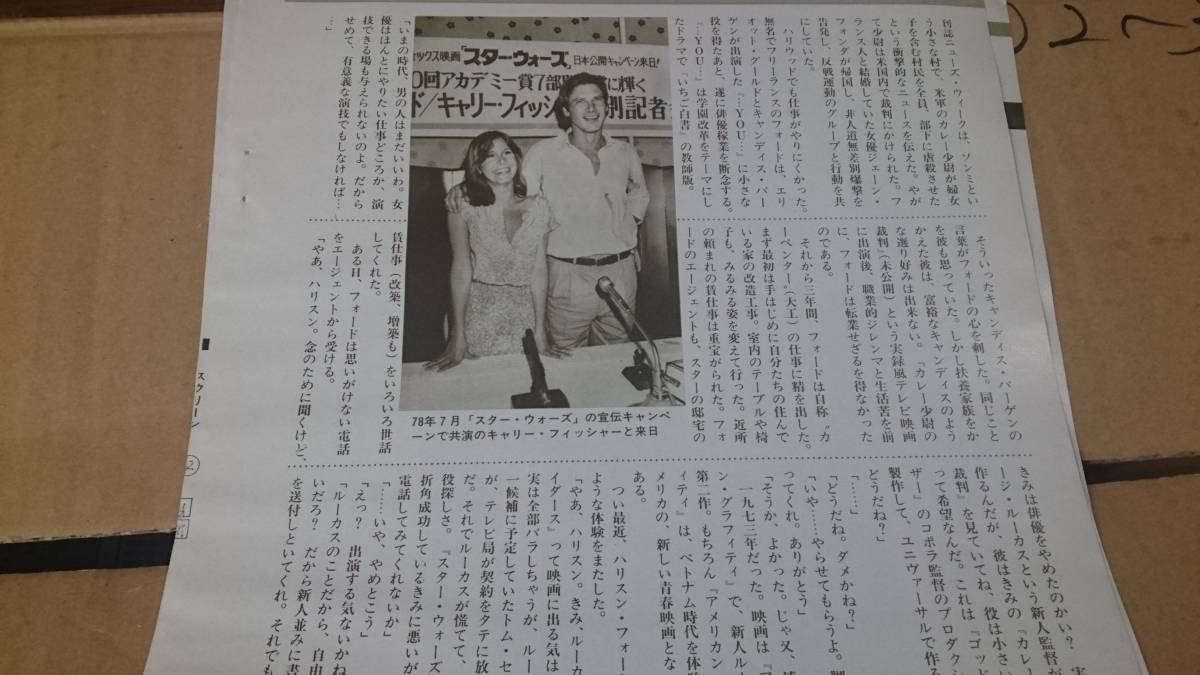 刊誌ニューズ・ウィークは、ソンミとい
う小さな村で、米軍のカレー少尉が婦女
子を含む村民を全員、部下に虐殺させた
という衝撃的なニュースを伝えた。やが
て少尉は米国内で裁判にかけられた。フ
ランス人と結婚していた女優ジェーン・
フォンダが帰国し、非人道無差別爆撃を
告発し、反戦運動のグループと行動を共
にしていた。
ハリウッドでも仕事がやりにくかった。
無名でフリーランスのフォードは、エリ
オット・グールドとキャンディス・バー
ゲンが出演した『…YOU…』に小さな
役を得たあと、遂に俳優稼業を断念する。
『…YOU…』は学園改革をテーマにし
たドラマで『いちご白書』の教師版。
ックス映画「スター・ウォーズ」日本公開キャンペーン来日!
0回アカデミー賞7部
に輝く
ド/キャリー・フィッシ
別記者
「いまの時代、男の人はまだいいわ。女
優はほんとにやりたい仕事どころか、演
技できる場も与えられないのよ。だから
せめて、有意義な演技でもしなければ…
…」
そういったキャンディス・バーゲンの
言葉がフォードの心を刺した。同じこと
を彼も思っていた。しかし扶養家族をか
かえた彼は、富裕なキャンディスのよう
な選り好みは出来ない。『カレー少尉の
裁判』(未公開)という実録風テレビ映画
に出演後、職業的ジレンマと生活苦を前
に、フォードは転業せざるを得なかった
のである。
それから三年間、フォードは自称〝カ
ーペンター〟(大工)の仕事に精を出した。
まず最初は手はじめに自分たちの住んで
いる家の改造工事。室内のテーブルや椅
子も、みるみる姿を変えて行った。近所
の頼まれの賃仕事は重宝がられた。フォ
ードのエージェントも、スターの邸宅の
78年7月「スター・ウォーズ」の宣伝キャンペ
ーンで共演のキャリー・フィッシャーと来日
賃仕事(改築、増築も)をいろいろ世話
してくれた。
ある日、フォードは思いがけない電話
をエージェントから受ける。
「やあ、ハリスン。念のために聞くけど、
きみは俳優をやめたのかい? 実
ージ・ルーカスという新人監督が
作るんだが、彼はきみの『カレー
裁判』を見ていてね、役は小さい
って希望なんだ。これは『ゴッド
ザー』のコポラ監督のプロダクシ
製作して、ユニヴァーサルで作る
どうだね?」
「……」
「どうだね。ダメかね?」
「いや……やらせてもらうよ。
ってくれ。ありがとう」
「そうか、よかった。じゃ又、
一九七三年だった。映画は『ア
ン・グラフィティ』で、新人ル
第二作。もちろん『アメリカン
ィティ』は、ベトナム時代を体
メリカの、新しい青春映画とな
ある。
つい最近、ハリスン・フォー
ような体験をまたした。
「やあ、ハリスン。きみ、ルーカ
イダース』って映画に出る気は
実は全部バラしちゃうが、ルー
一候補に予定していたトム・セ
が、テレビ局が契約をタテに放
だ。それでルーカスが慌てて、
役探しさ。『スター・ウォーズ
折角成功しているきみに悪いが
電話してみてくれないか」
「……いや、やめとこう」
「えっ? 出演する気ないかね
「ルーカスのことだから、自由
いだろ? だから新人並みに書
を送付しといてくれ。それでも
スクリーン